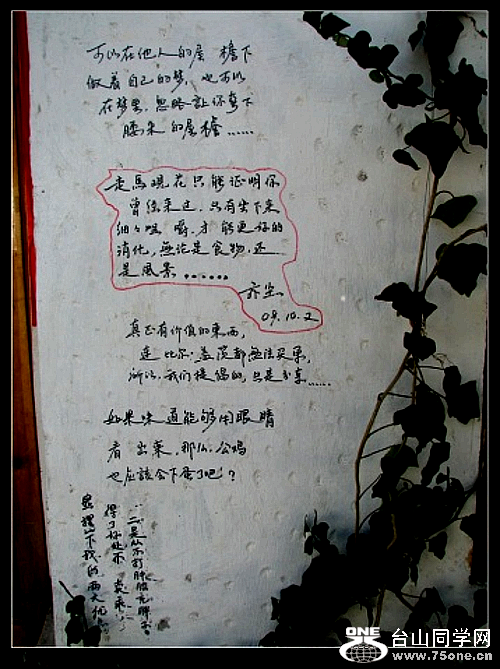 可以在他人的屋檐下
做着自己的梦，也可以
在梦里，忽略让你弯下
腰来的屋檐……
走馬观花只能证明你
曾经来过，只有坐下来
细々咀嚼，才能更好的
消化，無论是食物，还
是風景……
亦尘
09.10.2
真正有价值的東西，
連比尔·盖茨都無法买尽，
所以，我们提倡的，只是分享……
如果味道能够用眼睛
看出来，那么，公鸡
也应該会下蛋了吧？
台山同学网
www.75one.cn